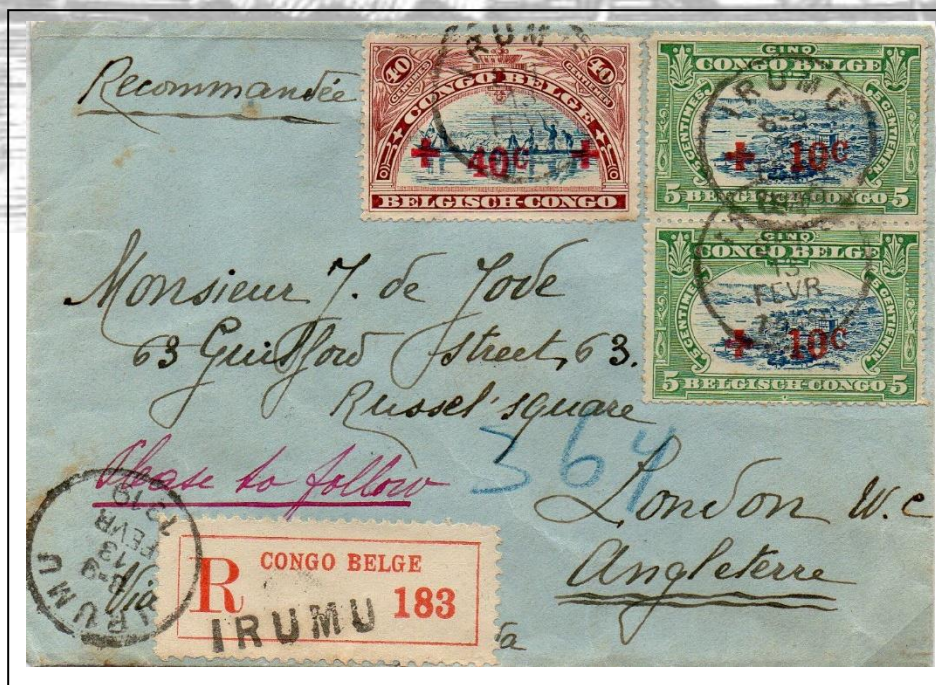 Recommandée
40 40
CENTIMES CENTIEMEN
CONGO BELGE
+ 40c +
BELGISCH-CONGO
IRUMU
13
CINQ
CONGO BELGE
5 CENTIMES. 5 CENTIEMEN.
+ 10c
5 BELGISCH-CONGO 5
IRUMU
CINQ
CONGO BELGE
5 CENTIMES 5 CENTIEMEN.
+ 10c
5 BELGISCH-CONGO 5
13
FEVR
Monsieur J. de Jode
63 Guilford Street, 63.
Russel' square
Please to follow
564
London W.C
Angleterre
IRUMU
8-9
13
FEVR
1919
Via
R CONGO BELGE
183
IRUMU